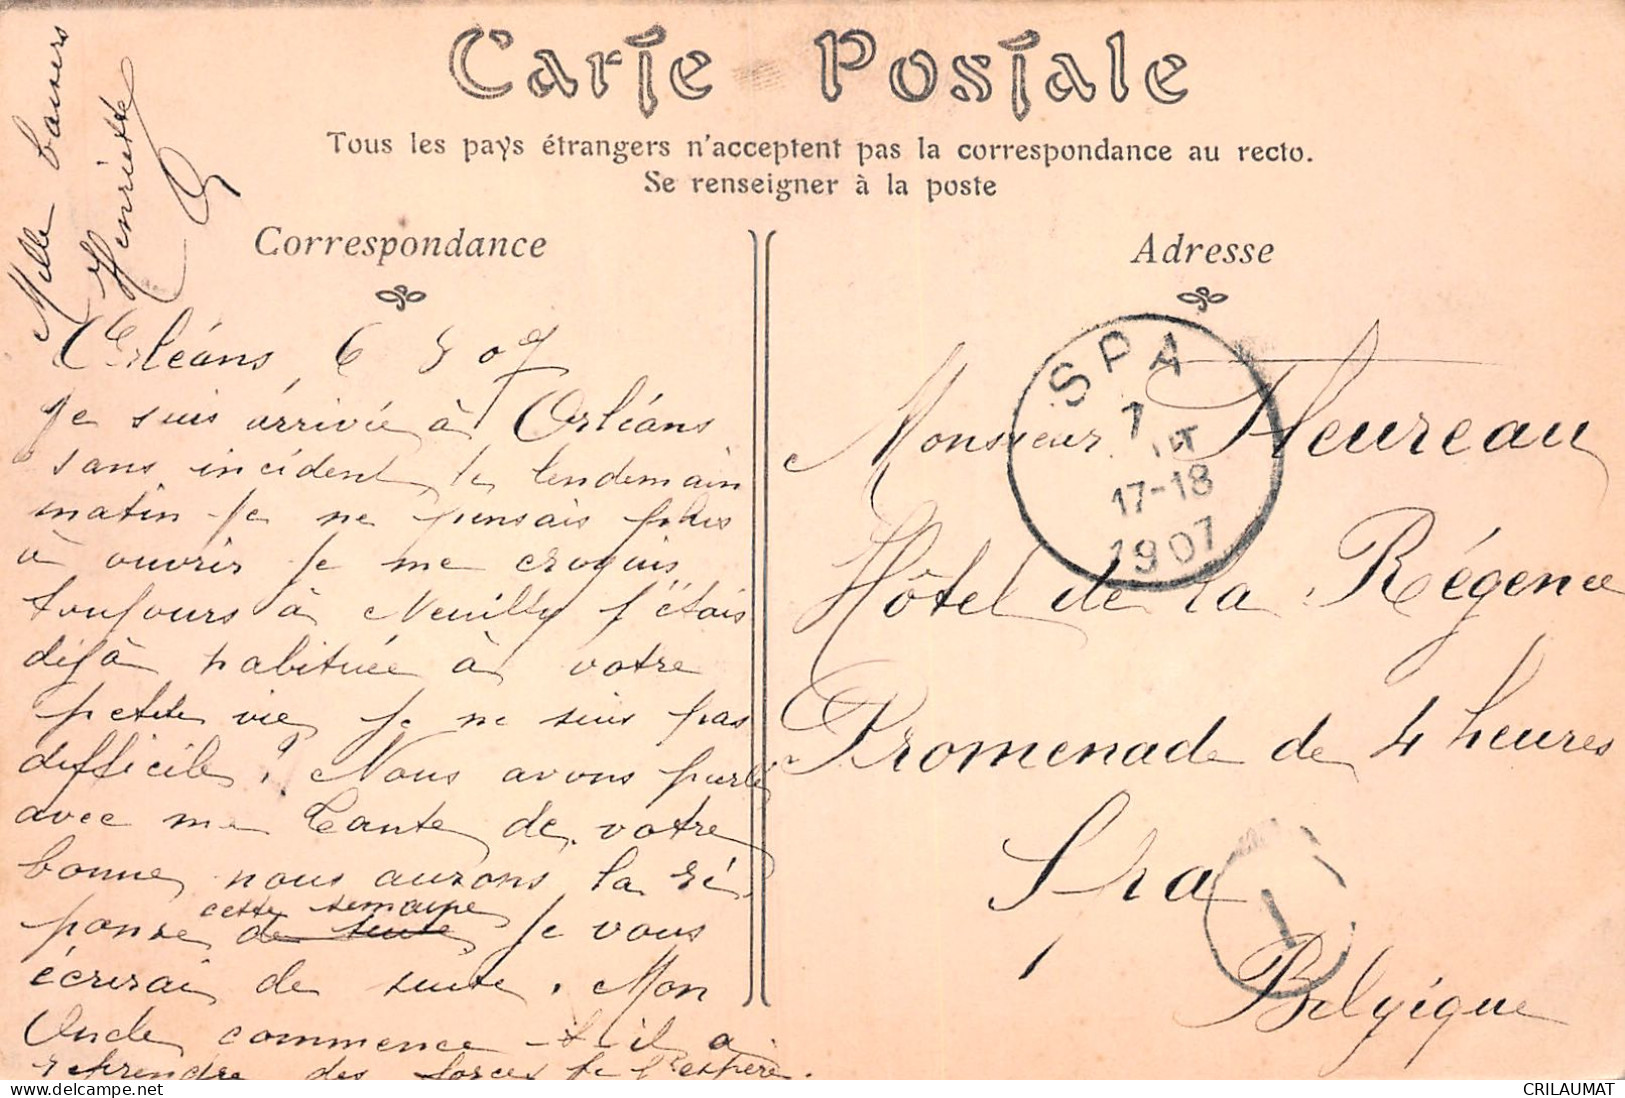 Carte Postale
Tous les pays étrangers n'acceptent pas la correspondance au recto.
Se renseigner à la poste
Correspondance
Mille baisers
Henriette
Orléans 6 8 07
Je suis arrivée à Orléans
sans incident le lendemain
matin Je ne pensais plus
à ouvrir Je me croyais
toujours à Neuilly j'étais
déjà habituée à votre
petite vie, je ne suis pas
difficile ? Nous avons parlé
avec ma Tante de votre
bonne, nous aurons la ré
cette semaine
ponse de suite Je vous
écrirai de suite. Mon
Oncle commence-t-il à
reprendre des forces je l'espère.
Adresse
SPA
7
17-18
1907
Monsieur Fleureau
Hôtel de la Régence
Promenade de 4 heures
Spa
1
Belgique
CRILAUMAT